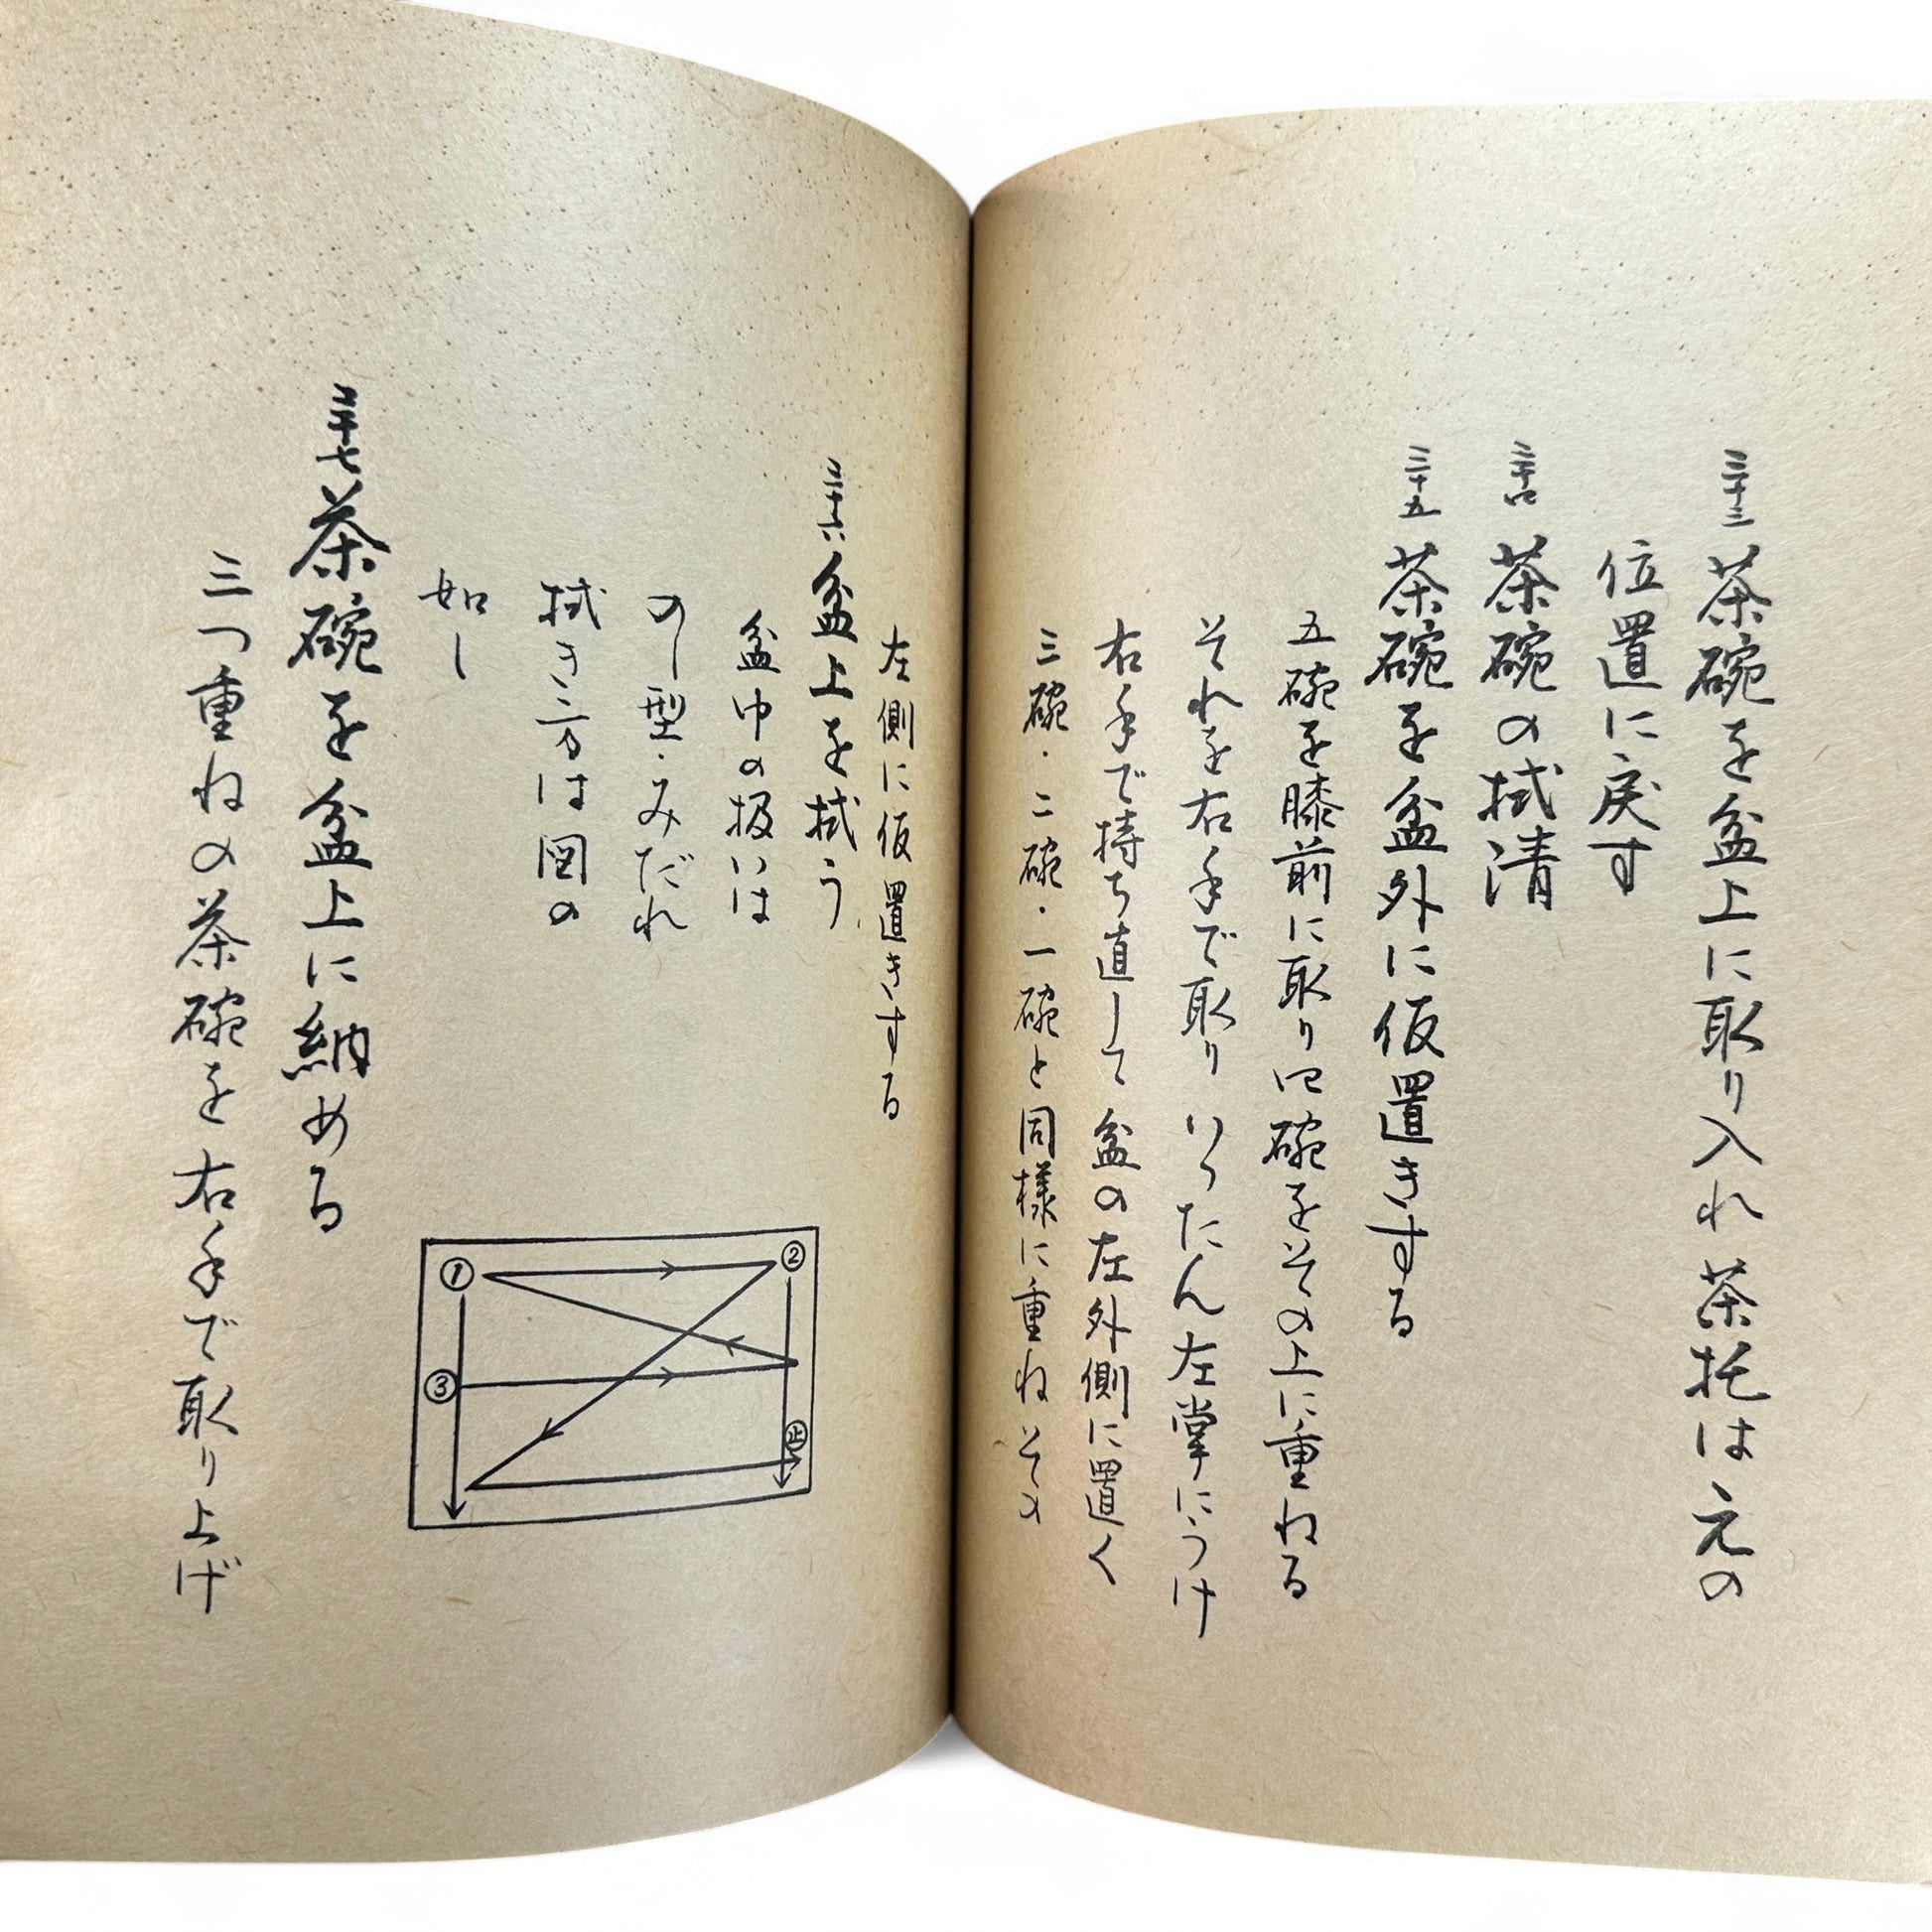 三十三 茶碗を盆上に取り入れ茶托は元の
位置に戻す
三十四 茶碗の拭清
三十五 茶碗を盆外に仮置きする
五碗を膝前に取り四碗をその上に重ねる
それを右手で取り いったん左掌にうけ
右手で持ち直して 盆の左外側に置く
三碗・二碗・一碗と同様に重ねその
左側に仮置きする
三十六 盆上を拭う
盆中の扱いは
のし型・みだれ
拭き方は図の
如し
① ②
③
止
三十七 茶碗を盆上に納める
三つ重ねの茶碗を右手で取り上げ